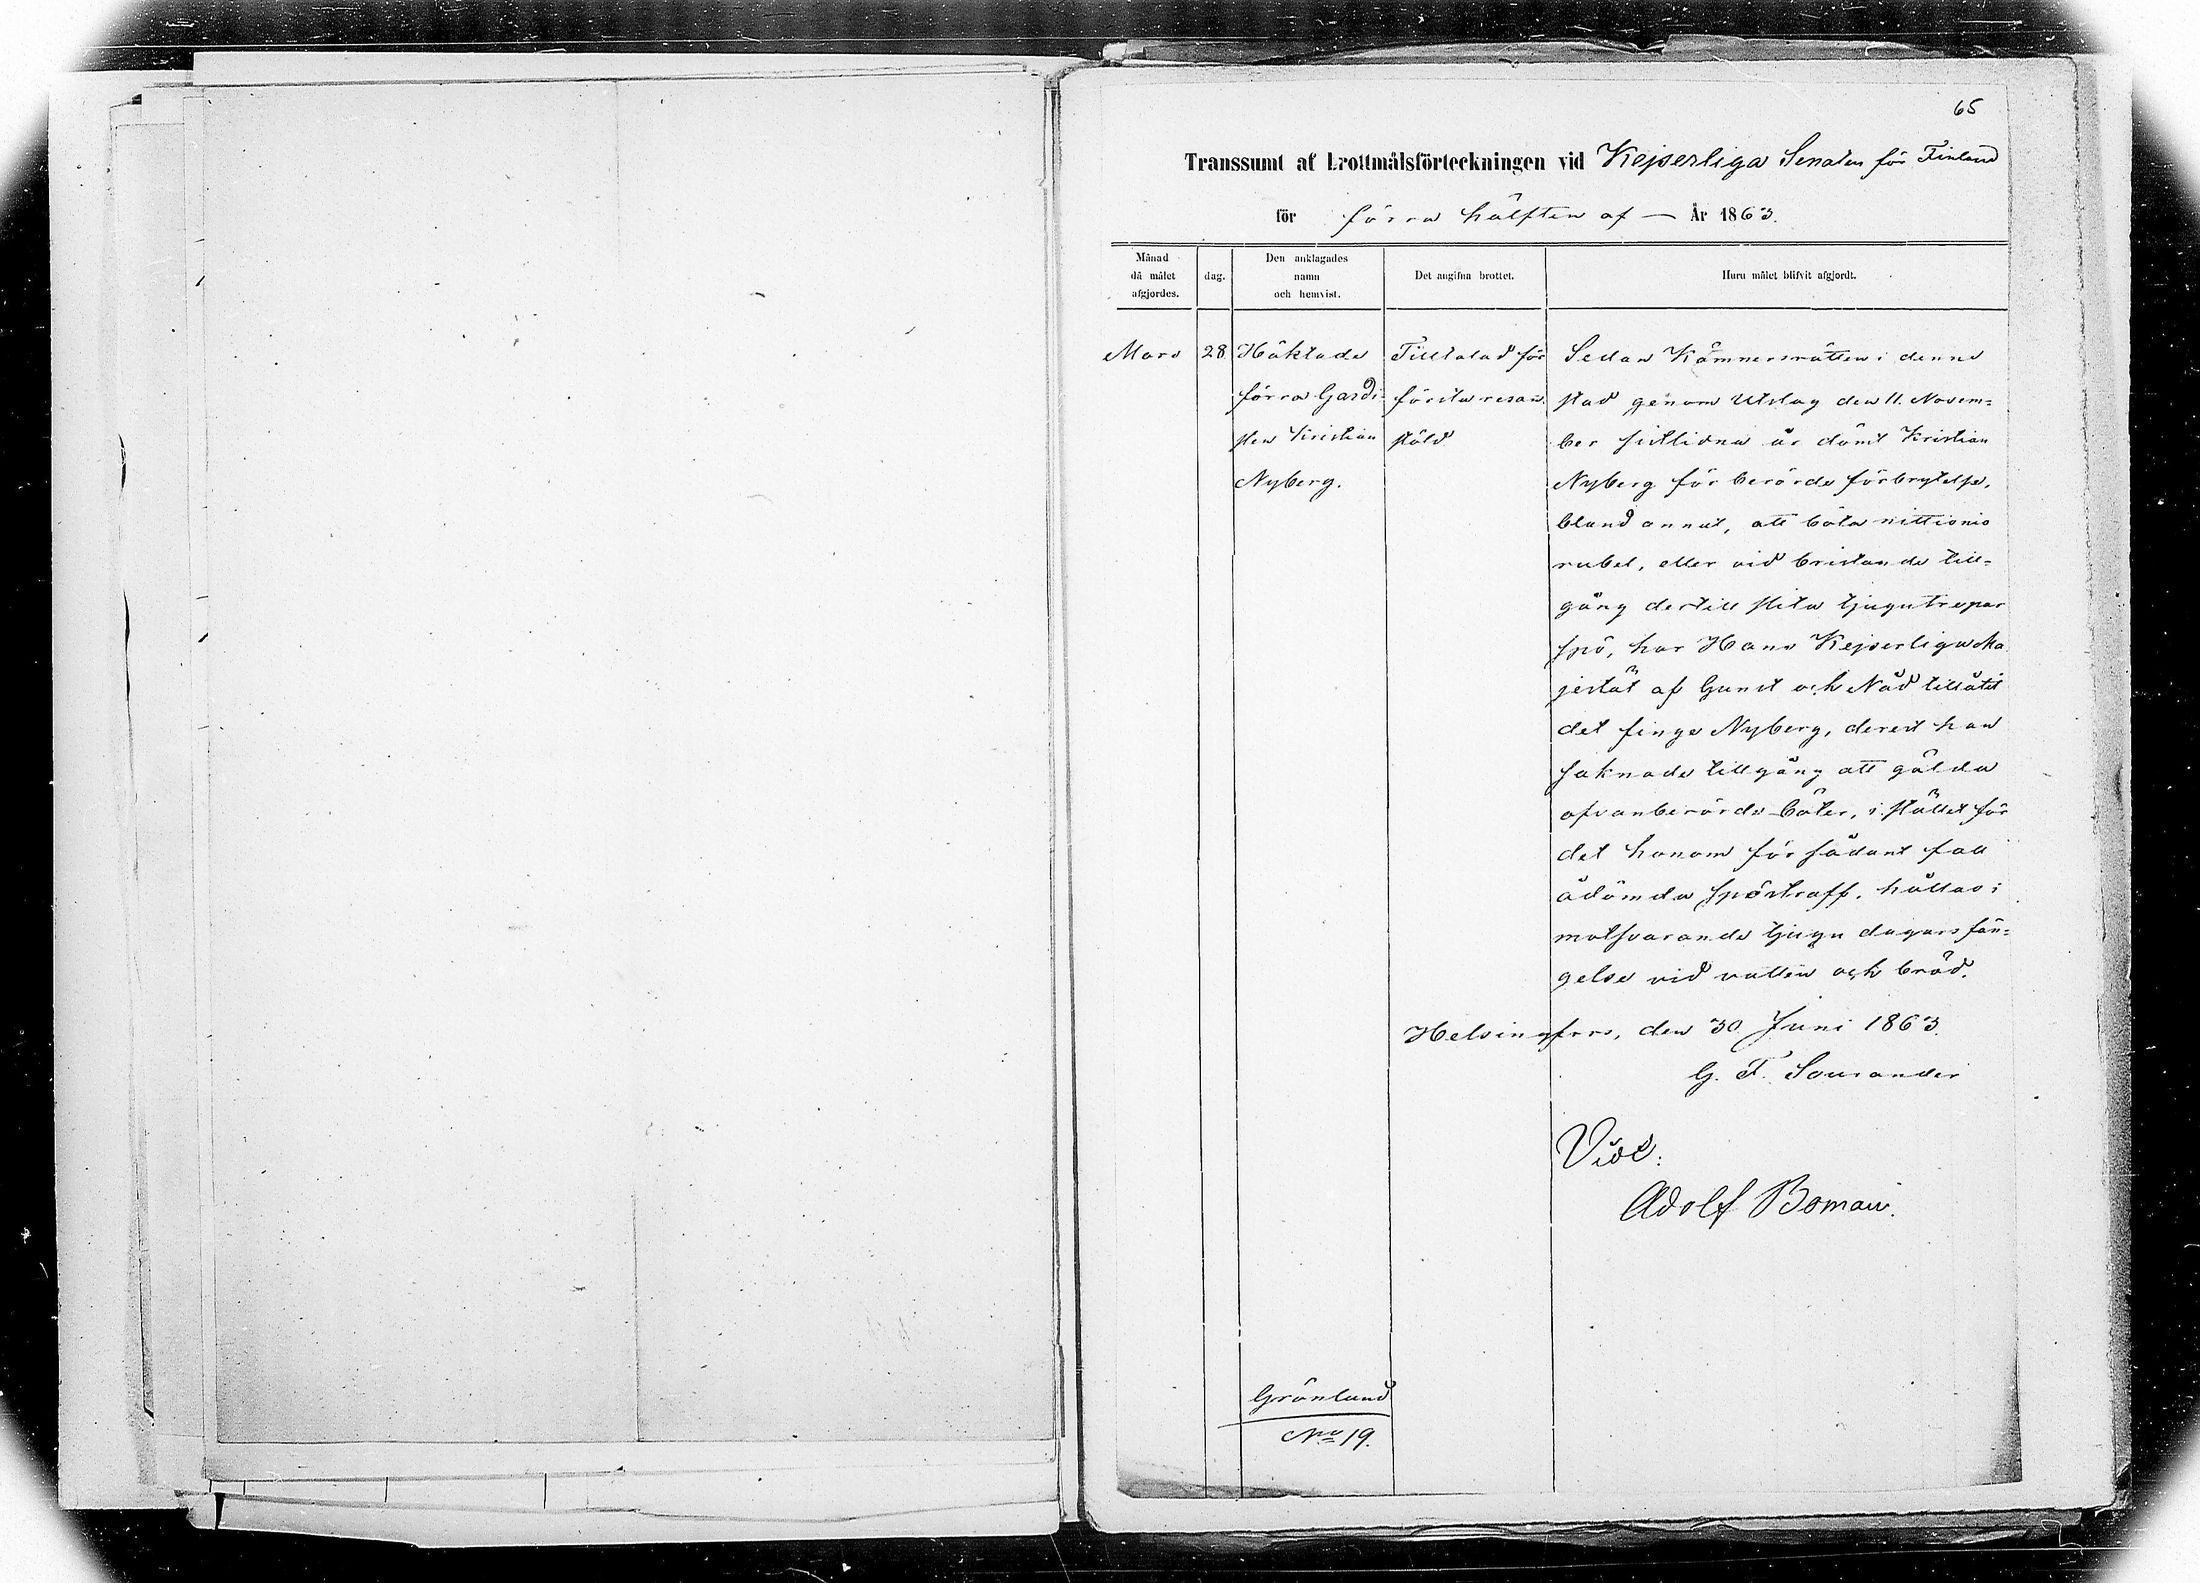 65
Transsumt af brottmålsförteckningen vid Kejserliga Senaten för Finland
för förra hälften af — År 1863.
Månad då målet afgjordes.
dag.
Den anklagades namn och hemvist.
Det angifna brottet.
Huru målet blifvit afgjordt.
Mars
28
Häktade
förra Gardi-
sten Kristian
Nyberg.
Tilltalad för
första resan
stöld
Sedan Kämnersrätten i denna
stad genom Utslag den 11. Novem=
ber sistlidna år dömt Kristian
Nyberg för berörde förbrytelse,
bland annat, att böta nittionio
rubel, eller vid bristande till=
gång dertill slita tjugutre par
spö, har Hans Kejserliga Ma
jestät af Gunst och Nåd tillåtit
det finge Nyberg, derest han
saknade tillgång att gälda
ofvanberörde böter, i stället för
det honom för sådant fall
ådömda spöstraff, hållas i
motsvarande tjugu dagars fän=
gelse vid vatten och bröd.
Helsingfors, den 30 Juni 1863.
G. F. Sourander
Vidi:
Adolf Boman.
Grönlund
No 19.